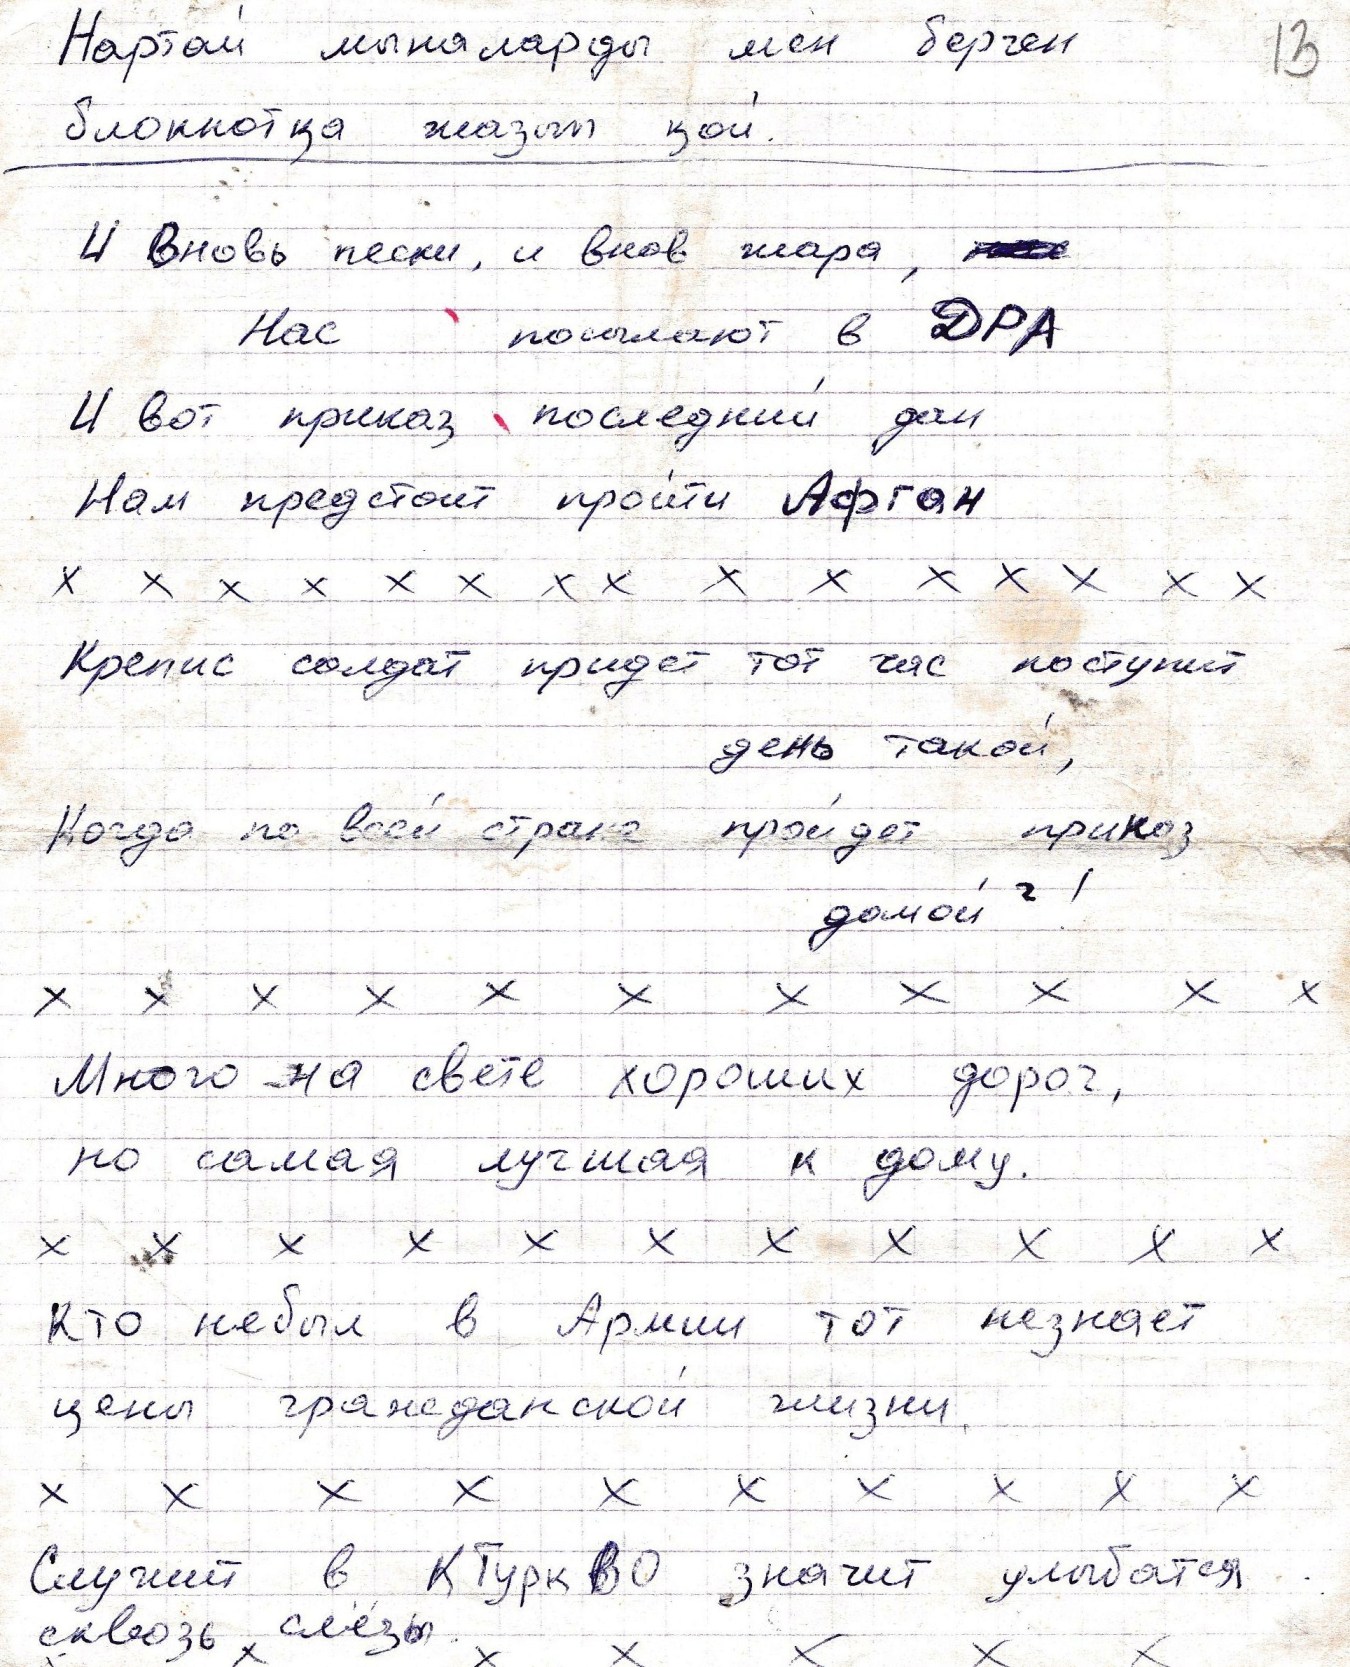 13
Нартай мыналарды мен берген
блокнотқа жазып қой.
И Вновь пески, и внов жара,
Нас посылают в ДРА
И вот приказ последний дан
Нам предстоит пройти Афган
х х х х х х х х х х х х х х х
Крепис солдат придет тот час наступит
день такой,
Когда по всей стране пройдет приказ
домой !
х х х х х х х х х х х
Много на свете хороших дорог,
но самая лучшая к дому.
х х х х х х х х х х х
Кто небыл в Армии тот незнает
цены гражданской жизни.
х х х х х х х х х х
Служит в КТуркВО значит улыбатся
сквозь слёзы.
х х х х х х